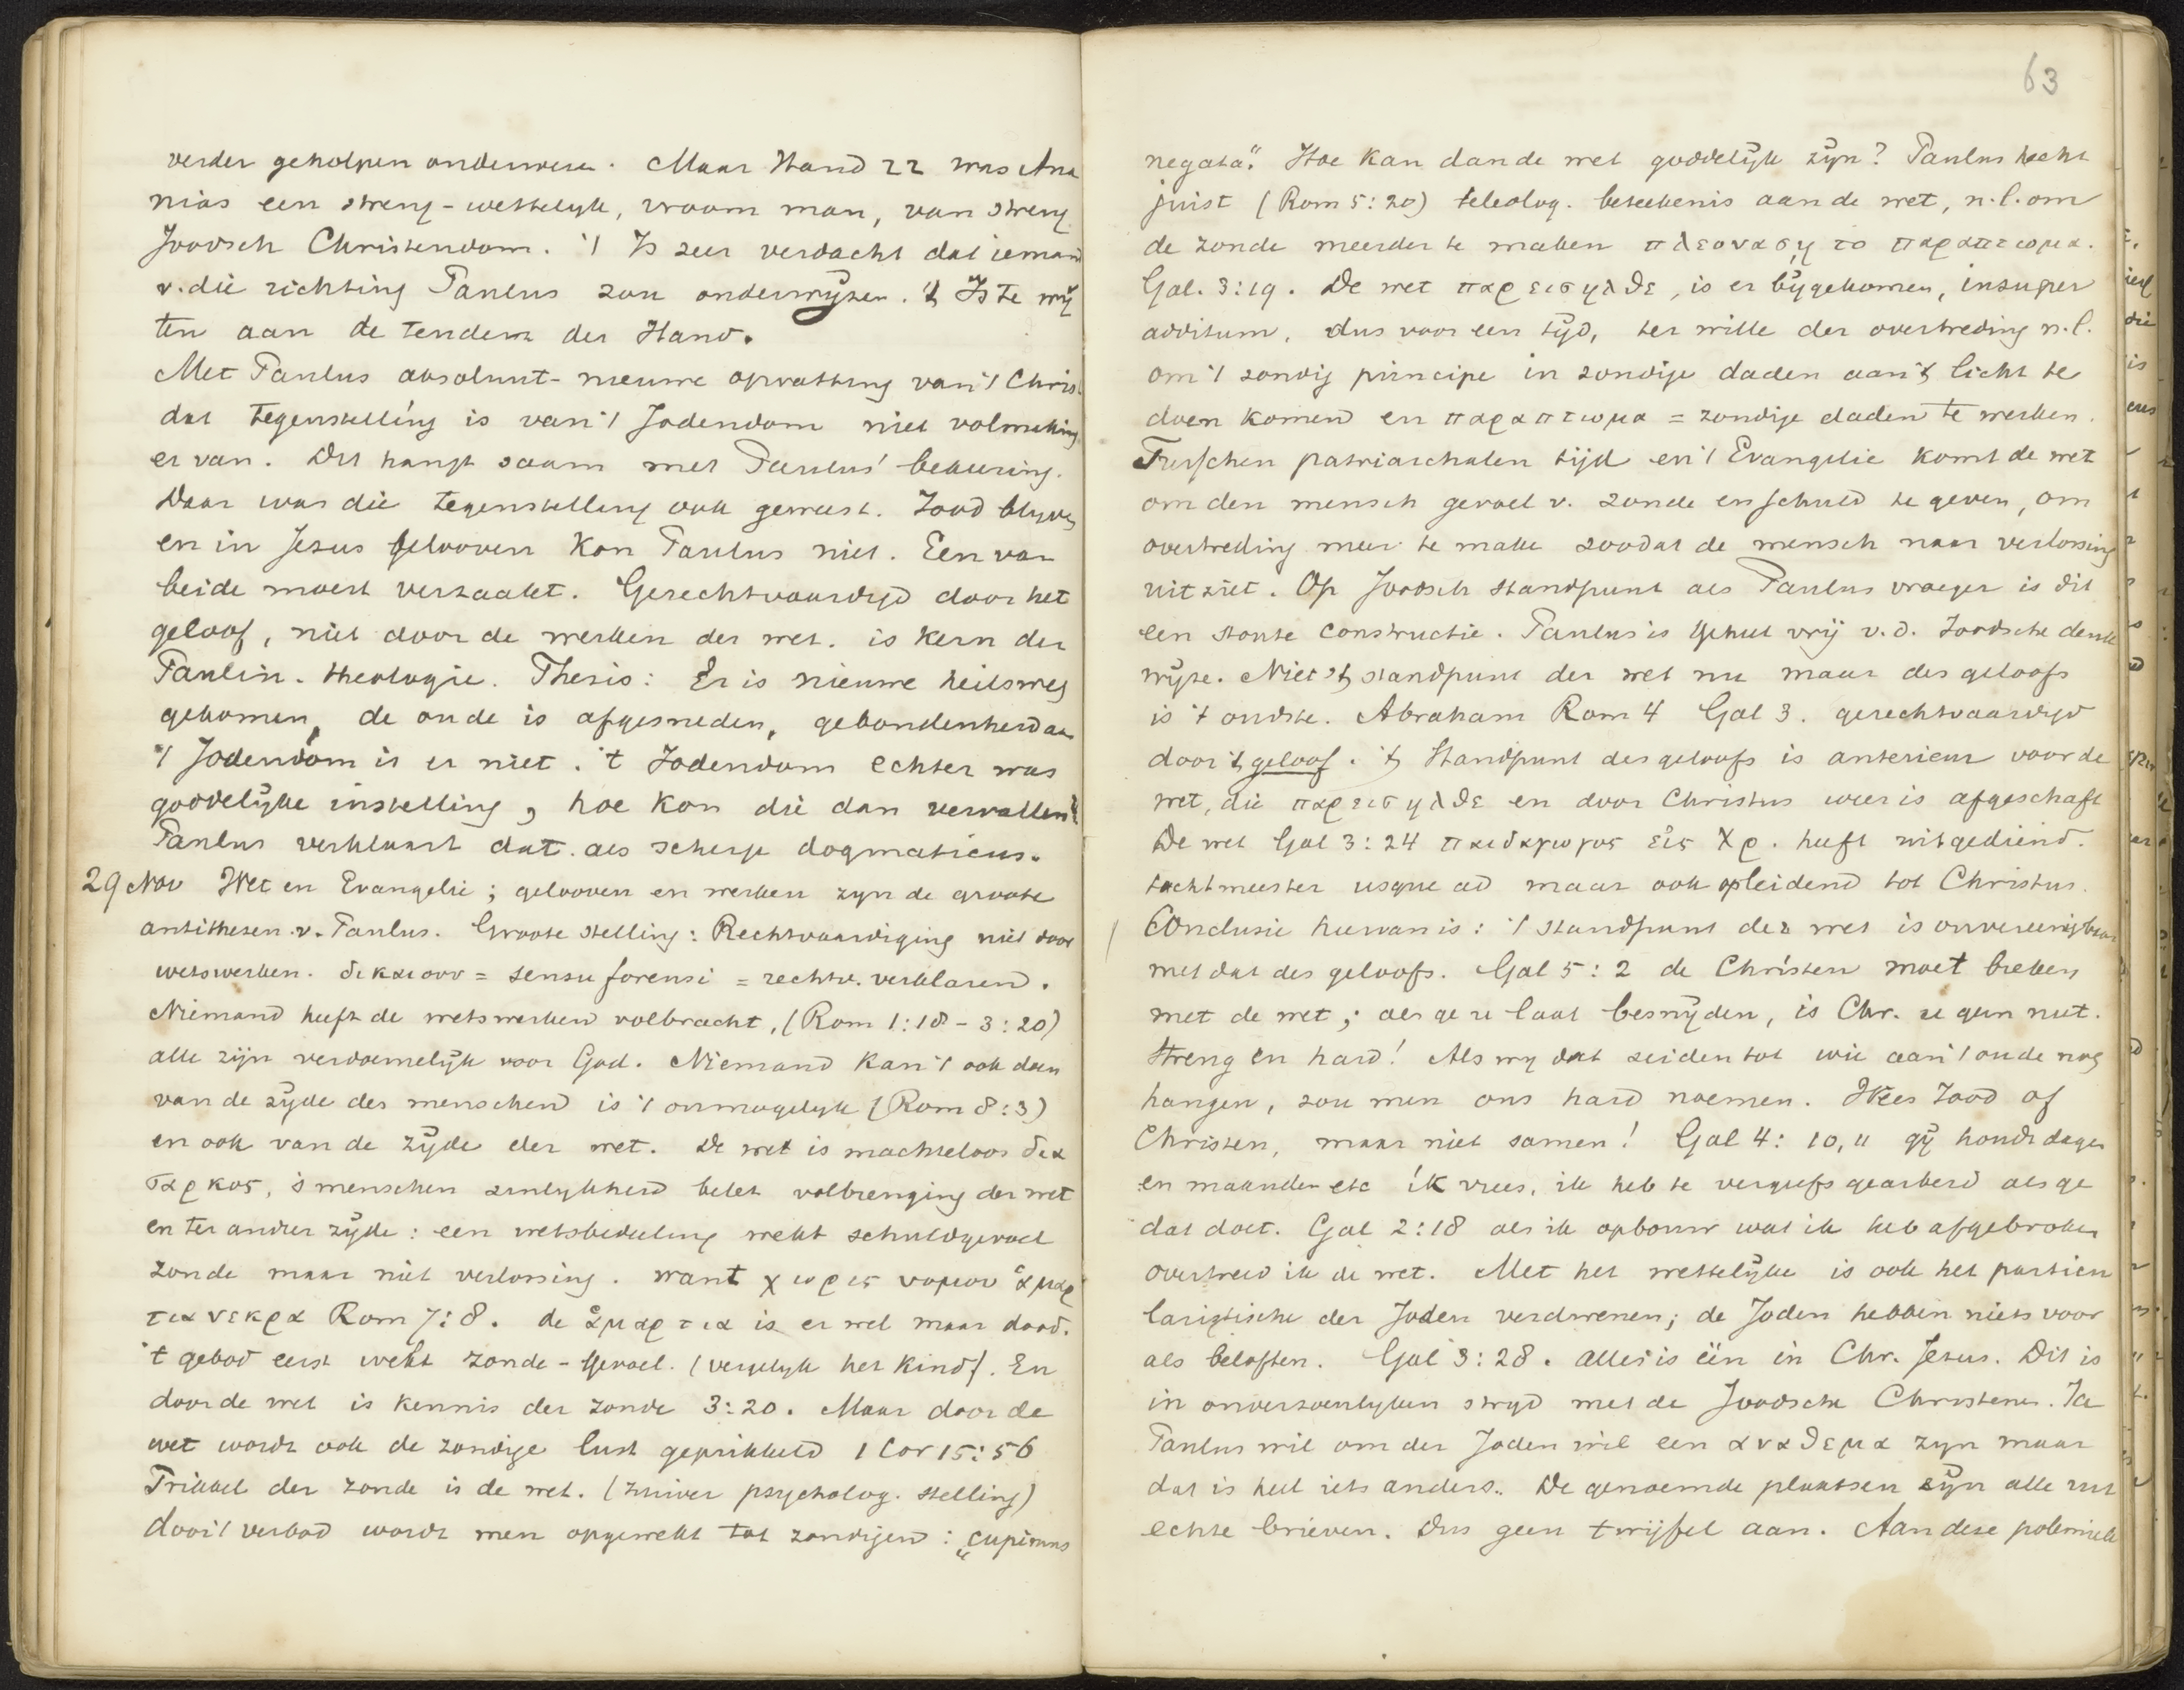 verder geholpen onderwezen. Maar Hand 22 was Ana
nias een streng-wettelyk, vroom man, van streng
Joodsch Christendom. 't Is zeer verdacht dat iemand
v. die richting Paulus zou onderwijzen. 't Is te wij
ten aan de tendenz der Hand.
Met Paulus absoluut-nieuwe opvatting van 't Chris.
dat tegenstelling is van 't Jodendom niet volmaking
er van. Dit hangt saam met Paulus' bekeering.
Daar was die tegenstelling ook geweest. Jood blyven
en in Jezus gelooven kon Paulus niet. Een van
beide moest verzaakt. Gerechtvaardigd door het
geloof, niet door de werken der wet. is kern der
Paulin. theologie. Thesis: Er is nieuwe heilsweg
gekomen, de oude is afgesneden, gebondenheid aan
't Jodendom is er niet. 't Jodendom echter was
goddelijke instelling, hoe kon die dan vervallen?
Paulus verklaart dat als scherp dogmaticus.
29 Nov Wet en Evangelie; gelooven en werken zyn de groote
antithesen v. Paulus. Groote stelling: Rechtvaardiging niet door
wetswerken. δικαιοω = sensu forensi = rechtv. verklaren.
Niemand heeft de wetswerken volbracht, (Rom 1:18 - 3:20)
alle zijn verdoemelijk voor God. Niemand kan 't ook doen
van de zijde des menschen is 't onmogelyk (Rom 8:3)
en ook van de zijde der wet. De wet is machteloos δια
σαρκος, 's menschen zinlykheid belet volbrenging der wet
en ter ander zijde: een wetsbedeeling wekt schuldgevoel
zonde maar niet verlossing. want χωρις νομου ἁμαρ
τια νεκρα Rom 7:8. de ἁμαρτια is er wel maar dood.
't gebod eerst wekt zonde-gevoel. (vergelyk het kind). En
door de wet is kennis der zonde 3:20. Maar door de
wet wordt ook de zondige lust geprikkeld 1 Cor 15:56
Prikkel der zonde is de wet. (zuiver psycholog. stelling)
door 't verbod wordt men opgewekt tot zondigen: „cupimus
63
negata". Hoe kan dan de wet goddelijk zijn? Paulus hecht
juist (Rom 5:20) teleolog. beteekenis aan de wet, n.l. om
de zonde meerder te maken πλεοναση το παραπτωμα.
Gal. 3:19. De wet παρεισηλθε, is er bijgekomen, insuper
additum, dus voor een tijd, ter wille der overtreding n.l.
om 't zondig principe in zondige daden aan 't licht te
doen komen en παραπτωμα = zondige daden te werken.
Tusschen patriarchalen tijd en 't Evangelie komt de wet
om den mensch gevoel v. zonde en schuld te geven, om
overtreding meer te make zoodat de mensch naar verlossing
uitziet. Op Joodsch standpunt als Paulus vroeger is dit
een stoute constructie. Paulus is geheel vrij v.d. Joodsche denk
wijze. Niet 't standpunt der wet nu maar des geloofs
is 't oudste. Abraham Rom 4 Gal 3. gerechtvaardigd
door 't geloof. 't Standpunt des geloofs is anterieur voor de
wet, die παρεισηλθε en door Christus weer is afgeschaft
De wet Gal 3:24 παιδαγωγος εἰς Χρ. heeft uitgediend.
tuchtmeester usque ad maar ook opleidend tot Christus.
Conclusie hiervan is: 't standpunt der wet is onvereenigbaar
met dat des geloofs. Gal 5:2 de Christen moet breken
met de wet; als ge u laat besnijden, is Chr. u geen nut.
Streng en hard! Als wy dat zeiden tot wie aan 't oude nog
hangen, zou men ons hard noemen. Wees Jood of
Christen, maar niet samen! Gal 4:10,11 gij houdt dagen
en maanden etc ik vrees, ik heb te vergeefs gearbeid als ge
dat doet. Gal 2:18 als ik opbouw wat ik heb afgebroken
overtreed ik de wet. Met het wettelijke is ook het particu
laristische der Joden verdwenen; de Joden hebben niets voor
als beloften. Gal 3:28. alles is één in Chr. Jezus. Dit is
in onverzoenlyken stryd met de Joodsche Christenen. Ja
Paulus wil om der Joden wil een αναθεμα zyn maar
dat is heel iets anders. De genoemde plaatsen zijn alle uit
echte brieven. Dus geen twijfel aan. Aan deze polemiek